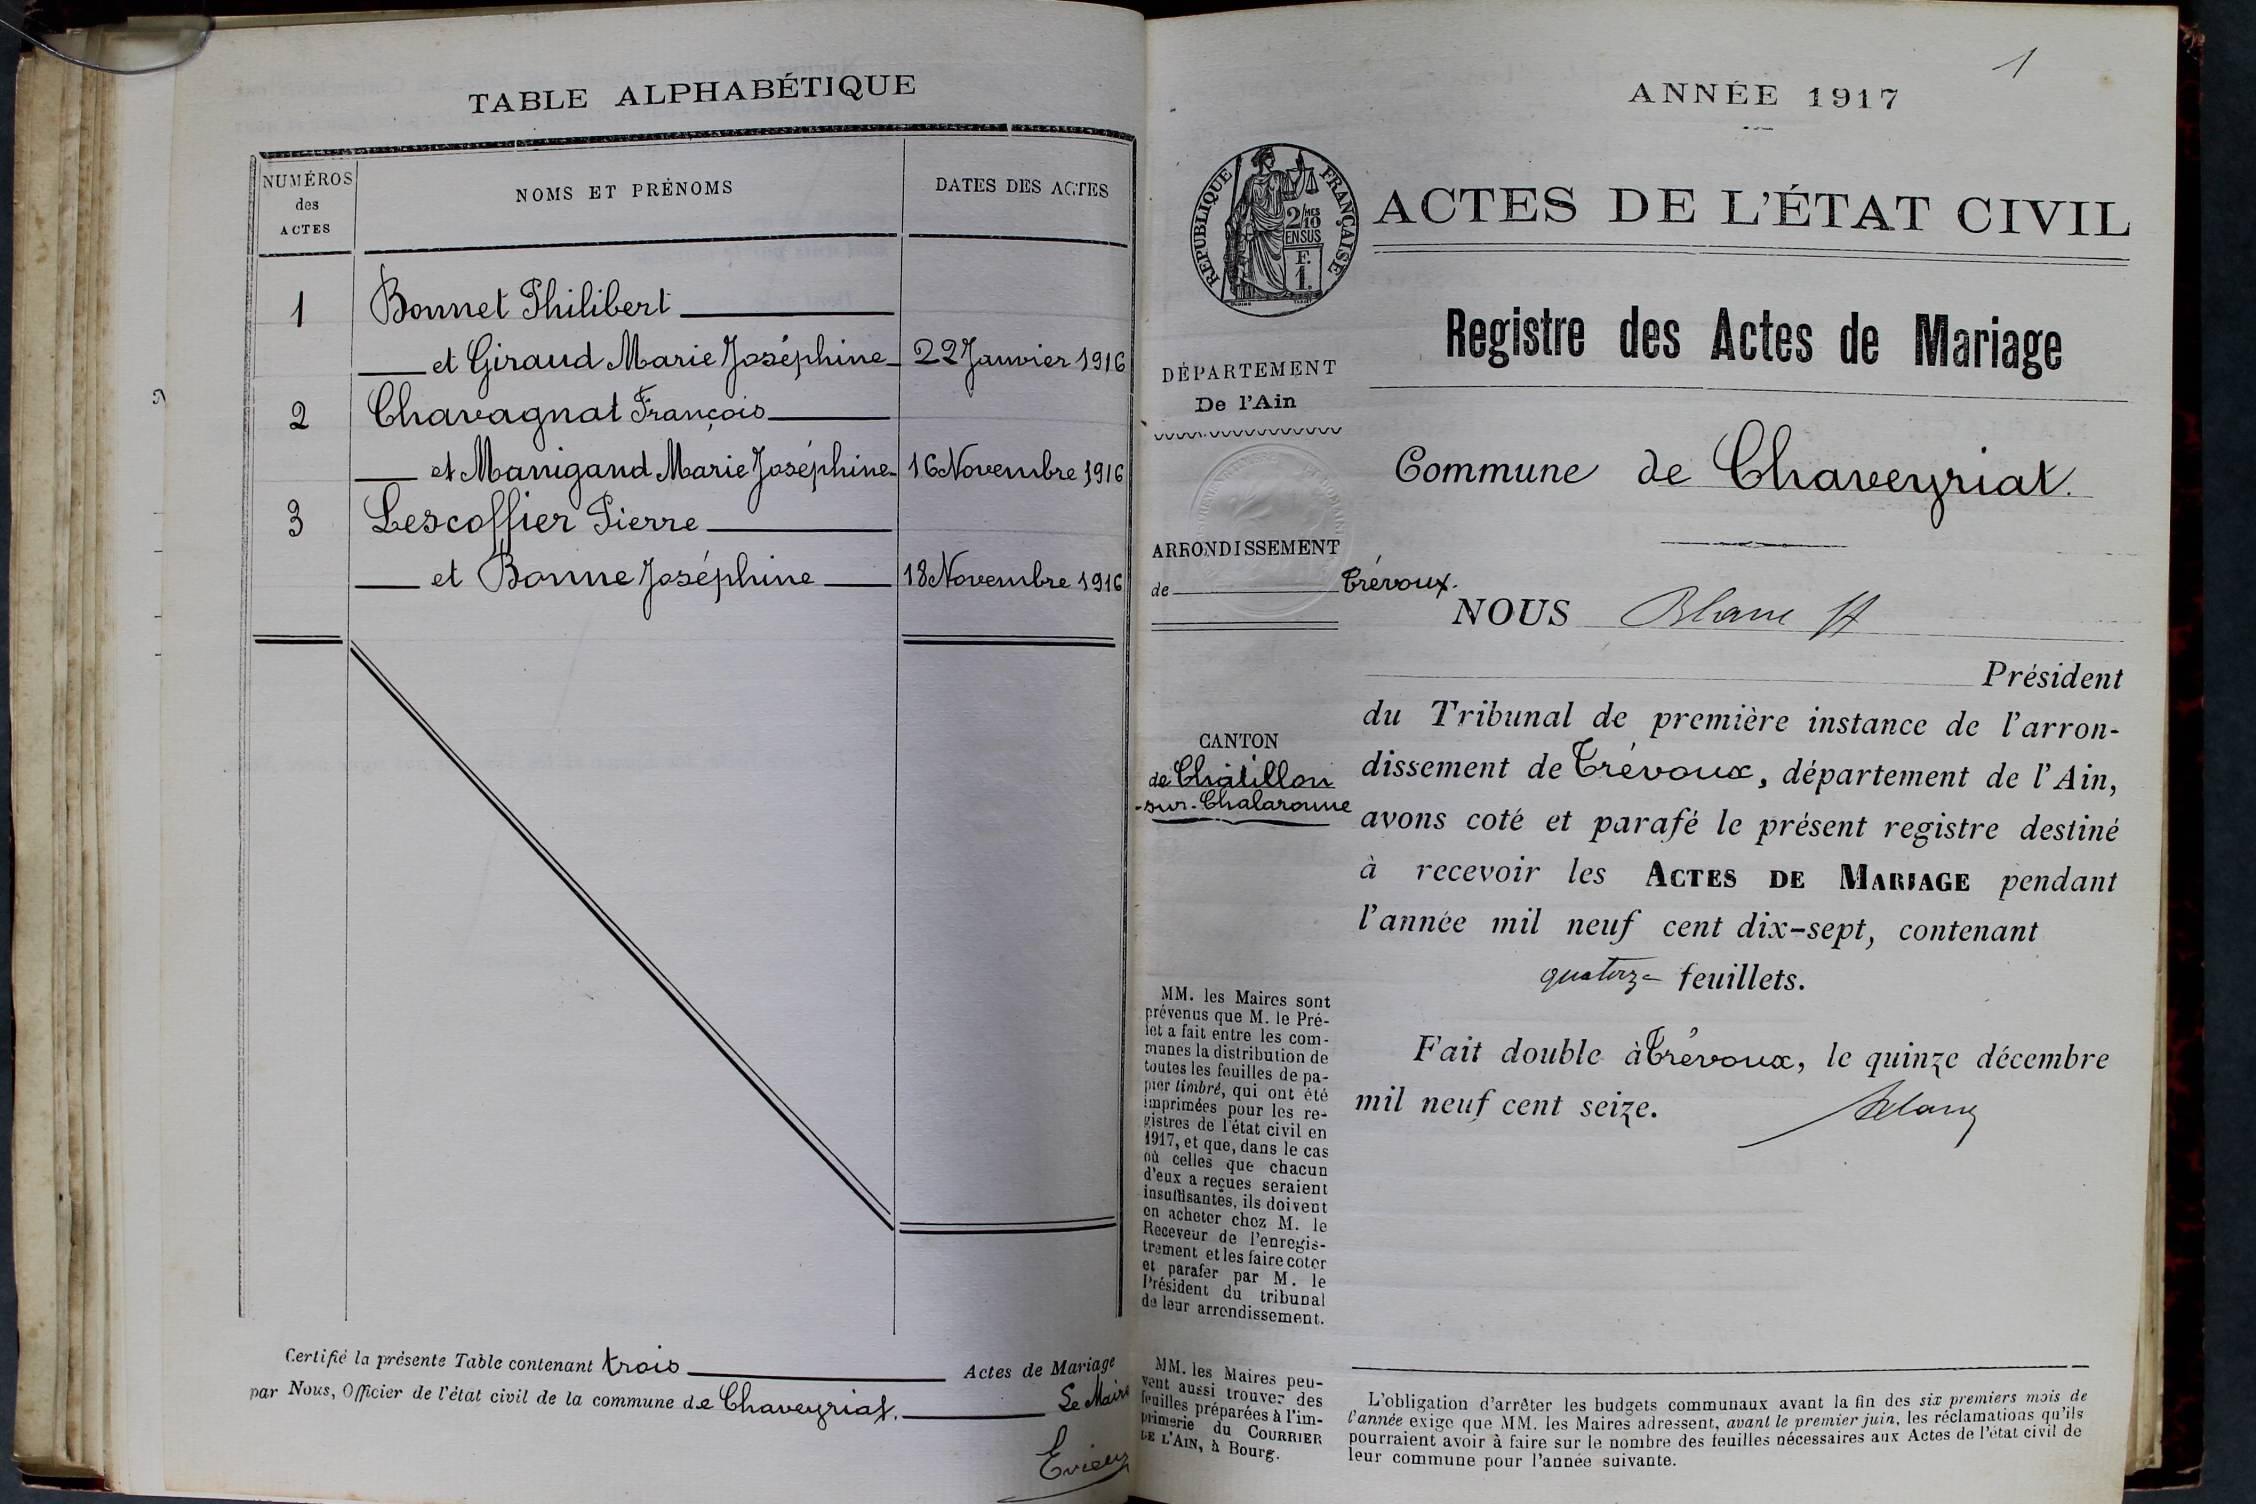 TABLE ALPHABÉTIQUE
NUMÉROS
des
ACTES
NOMS ET PRÉNOMS
DATES DES ACTES
1 Bonnet Philibert
et Giraud Marie Joséphine 22 Janvier 1916
2 Chavagnat François
et Manigand Marie Joséphine 16 Novembre 1916
3 Lescoffier Pierre
et Bonne Joséphine 18 Novembre 1916
Certifié la présente Table contenant trois Actes de Mariage
par Nous, Officier de l'état civil de la commune de Chaveyriat. Le Maire
Evieux
1
ANNÉE 1917
RÉPUBLIQUE FRANÇAISE
2/10 MES
EN SUS
F.
1.
ACTES DE L'ÉTAT CIVIL
Registre des Actes de Mariage
DÉPARTEMENT
De l'Ain
Commune de Chaveyriat.
ARRONDISSEMENT
de Trévoux.
NOUS Blanc
Président
du Tribunal de première instance de l'arron-
dissement de Trévoux, département de l'Ain,
avons coté et parafé le présent registre destiné
à recevoir les ACTES DE MARIAGE pendant
l'année mil neuf cent dix-sept, contenant
quatorze feuillets.
Fait double à Trévoux, le quinze décembre
mil neuf cent seize.
Blanc
CANTON
de Châtillon
-sur-Chalaronne
MM. les Maires sont
prévenus que M. le Pré-
fet a fait entre les com-
munes la distribution de
toutes les feuilles de pa-
pier timbré, qui ont été
imprimées pour les re-
gistres de l'état civil en
1917, et que, dans le cas
où celles que chacun
d'eux a reçues seraient
insuffisantes, ils doivent
en acheter chez M. le
Receveur de l'enregis-
trement et les faire coter
et parafer par M. le
Président du tribunal
de leur arrondissement.
MM. les Maires peu-
vent aussi trouver des
feuilles préparées à l'im-
primerie du COURRIER
DE L'AIN, à Bourg.
L'obligation d'arrêter les budgets communaux avant la fin des six premiers mois de
l'année exige que MM. les Maires adressent, avant le premier juin, les réclamations qu'ils
pourraient avoir à faire sur le nombre des feuilles nécessaires aux Actes de l'état civil de
leur commune pour l'année suivante.